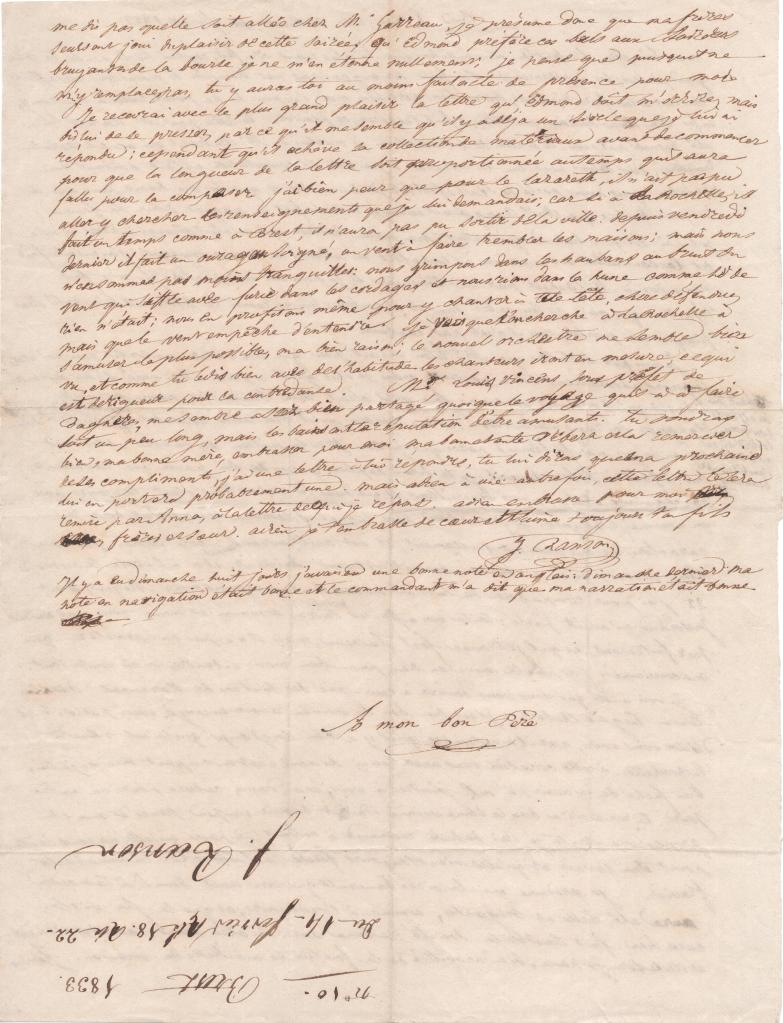 me dis pas quelle soit allée chez Mr Garreau, je présume donc que ma frères
seuls ont joui du plaisir de cette soirée. qu'Edmond préfère ces bals aux
bruyantes de la bourse je ne m'en étonne nullement; je pense que puisqu'il ne
m'y remplacera pas, tu y auras toi au moins fait acte de présence pour moi
Je recevrai avec le plus grand plaisir la lettre qu'Edmond doit m'écrire, mais
dis lui de se presser, par ce qu'il me semble qu'il y a déjà un siècle que je lui ai
répondu; cependant qu'il achève la collection de matériaux avant de commencer
pour que la longueur de la lettre soit proportionnée au temps qu'il aura
fallu pour la composer j'ai bien peur que pour le lazareth, il n'ait pas pu
aller y chercher les renseignements que je lui demandais; car si à La Rochelle, il
fait un temps comme à Brest, il n'aura pas pu sortir de la ville; depuis vendredi
dernier il fait un ouragan soigné, un vent à faire trembler les maisons; mais nous
n'en sommes pas moins tranquilles: nous grimpons dans les haubans au bruit du
vent qui siffle avec furie dans les cordages et nous rions dans la hune comme si de
rien n'était; nous en profitons même pour y chanter à tue tête, chose défendue,
mais que le vent empêche d'entendre. Je vois que l'on cherche à La Rochelle à
s'amuser le plus possible, on a bien raison; le nouvel orchestre me semble bien
vu, et comme tu le dis bien avec des habitudes les chanteurs iront en mesure, ce qui
est de rigueur pour la contredanse. Mr Louis Vincens sous préfet de
me semble assez bien partagé quoique le voyage qu'il a à faire
soit un peu long, mais les bains ont la réputation d'être amusants. tu voudras
bien, ma bonne mère, embrasser pour moi ma bonne tante et la remercier
de ses compliments, j'ai une lettre à lui répondre, tu lui diras que ma prochaine
lui en portera probablement une. mais rien à vie autrefois, cette lettre te sera
remise par Anna, à la lettre de qui je répons. adieu embrasse pour moi
frères et sœur. adieu je t'embrasse de cœur et t'aime toujours ton fils
J. Ranson
Il y a eu dimanche huit jours j'avais eu une bonne note en anglais; dimanche dernier ma
note en navigation était bonne et le commandant m'a dit que ma narration était bonne
A mon bon Père
J. Ranson
Du 14 février 18. au 22.
n° 10. Brest 1833.